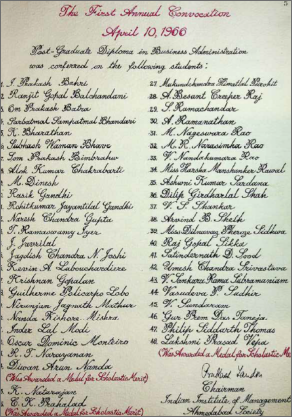 5
The First Annual Convocation
April 10, 1966
Post-Graduate Diploma in Business Administration
was conferred on the following students:
1. J. Prakash Bahri
2. Ranjit Gopal Balchandani
3. Om Prakash Batra
Sarbatmal Sampatmal Bhandari
K. Bharathan
Subhash Waman Bhave
Som Prakash Bimbrahw
Alok Kumar Chakrabarti
M. Dinesh
Rasik Gandhi
Rohitkumar Jayantilal Gandhi
Naresh Chandra Gupta
T. Ramaswamy Iyer
J. Juvrilal
Jagdish Chandra N. Joshi
Kevin A Labouchardiere
Krishnan Gopalan
Guilherme Feliciano Lobo
Niranjan Jagnath Mathur
Nanda Kishore Mishra
Inder Lal Modi
Oscar Dominic Monteiro
R. T. Narayanan
Diwan Arun Nanda
(Was Awarded a Medal for Scholastic Merit)
R. Natarajan
C. K. Prahalad
(Was Awarded a Medal for Scholastic Merit)
28. Mukundchandra Himatlal Purohit
29. A. Besant Cooper Raj
30. S. Ramachandar
31. A. Ramanathan
M. Nageswara Rao
33. M. R. Narasimha Rao
V. Nandakumara Rao
Miss Varsha Manshanker Raval
36. Ashwni Kumar Sardana
Dilip Girdharlal Shah
V. S. Shanker
Arvind B. Sheth
Miss Dilnawaz Pheroze Sidhwa
Raj Gopal Sikka
Satindernath D. Sood
Umesh Chandra Srivastava
V. Sankara Rama Subramaniam
Vasudeva P. Sadhir
V. Sundaram
Gur Prem Das Tuneja
Philip Siddarth Thomas
Lakshmi Prasad Teja
(Was Awarded a Medal for Scholastic Me
Prakash Tandon
Chairman
Indian Institute of Management
Ahmedabad Society